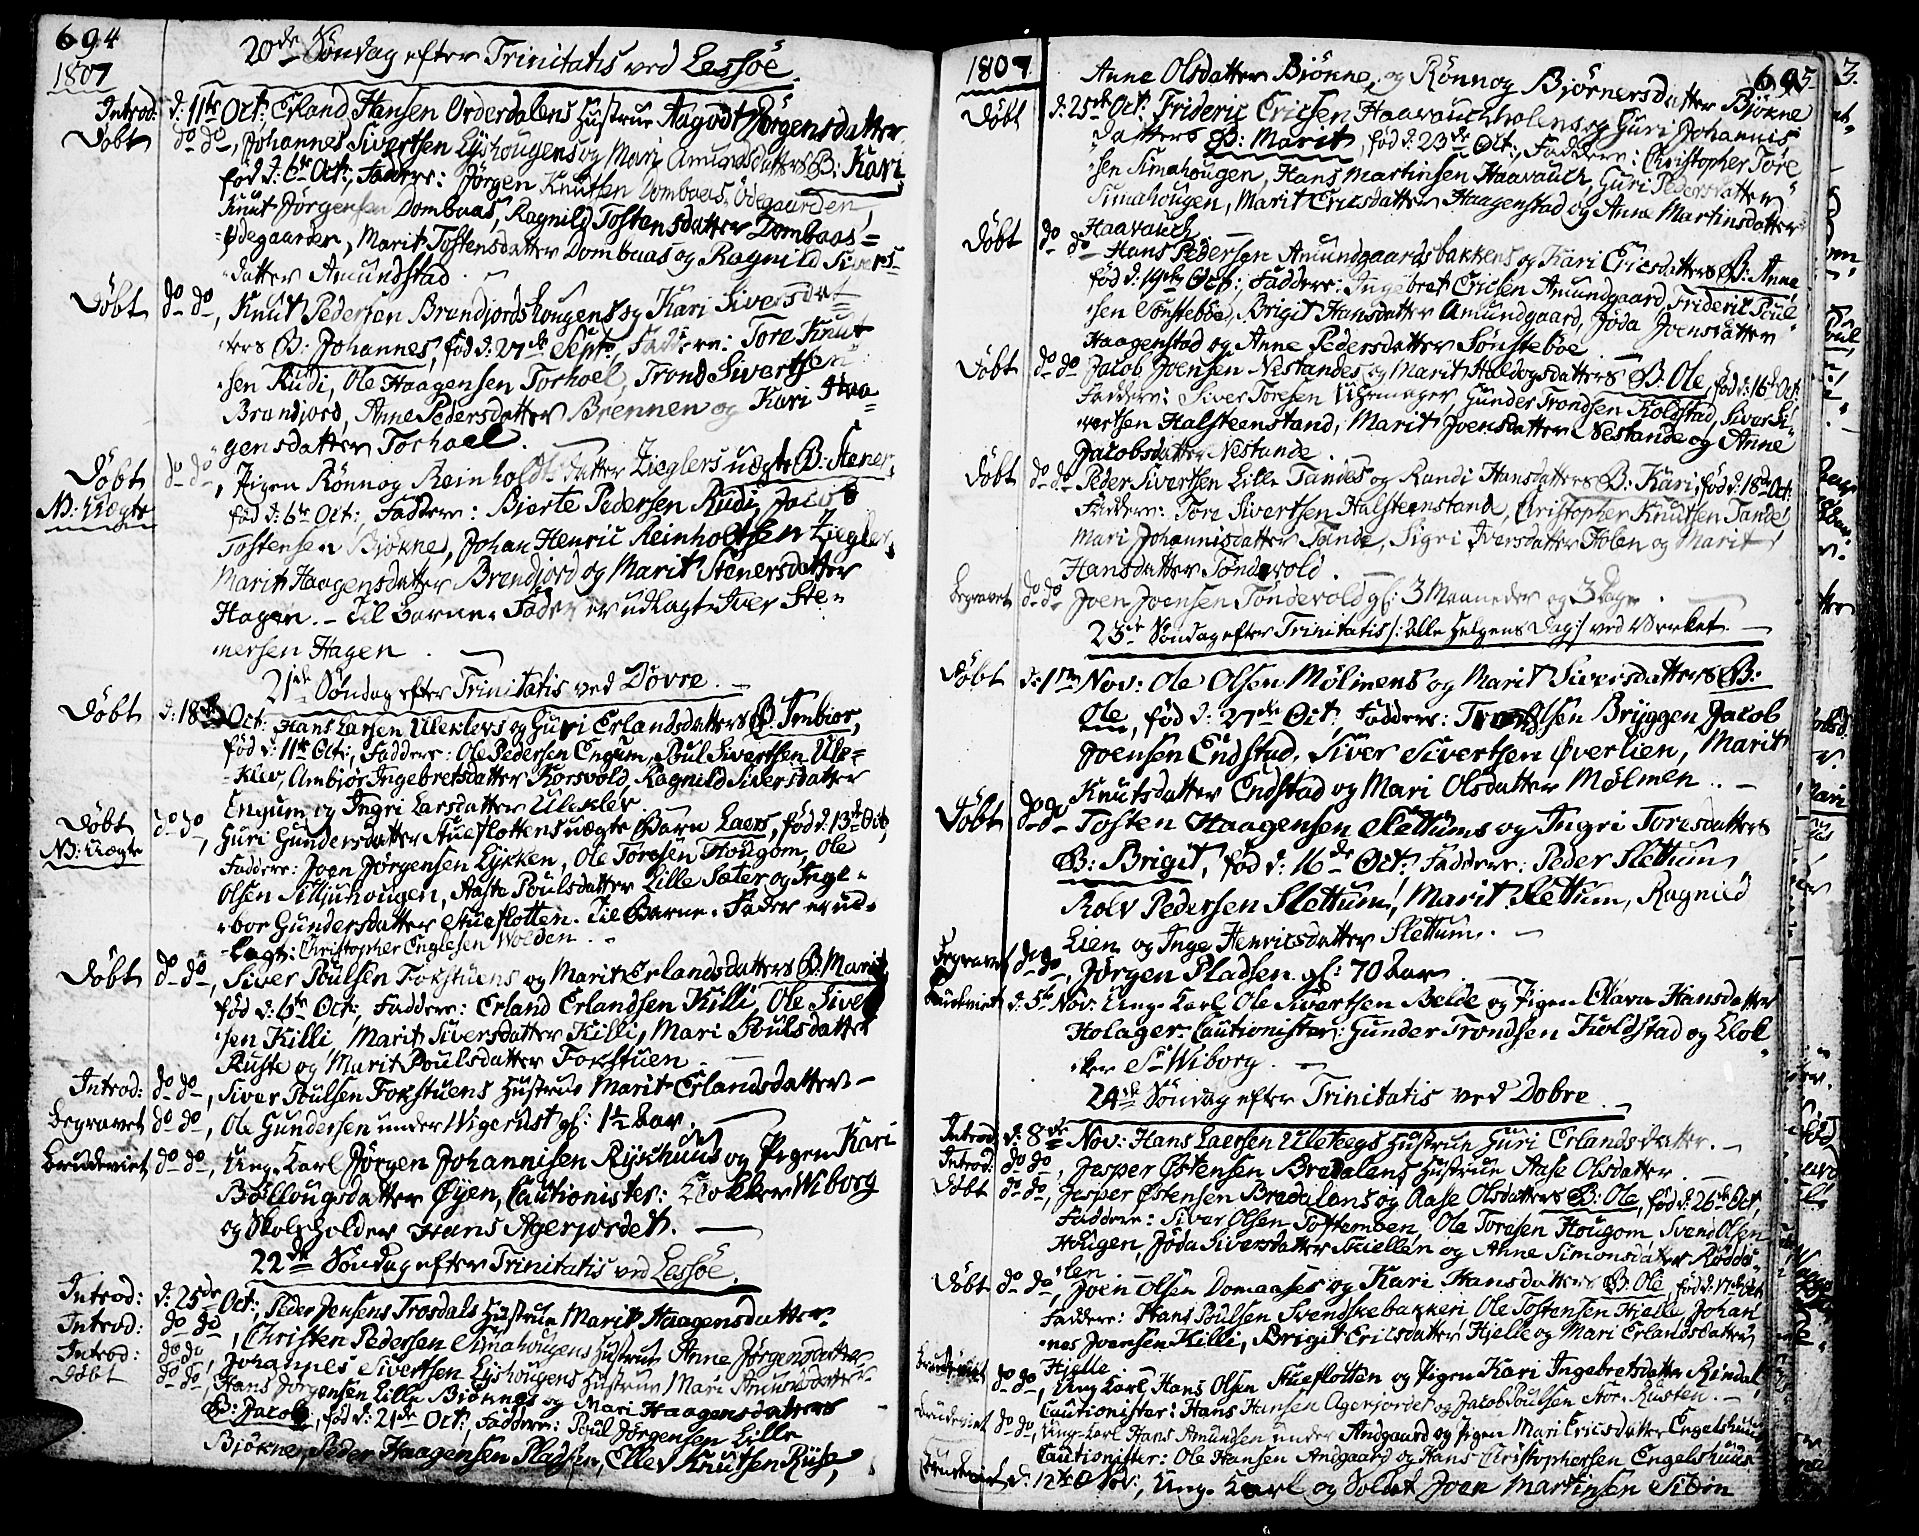 694
1807
20de Söndag efter Trinitatis ved Lessöe.
Introd: d: 11te Oct: Erland Hansen Orderdalens Hustrue Aagodt Jørgensdatter
Døbt do do, Johannes Sivertsen Lyshougens og Mari Amundsdatters B: Kari,
fød d: 6te Oct:, Faddere: Jørgen Knutsen Dombaas Ødegaarden,
Knut Jørgensen Dombaas, Ragnild Tostensdatter Dombaas=
=Ødegaarden, Marit Tostensdatter Dombaas og Ragnild Sivers=
datter Amundstad.
Døbt do do, Knut Pedersen Brandjordshougens og Kari Siversdat
ters B: Johannes, fød d: 27de Septr, Faddere: Tore Knut
sen Rudi, Ole Haagensen Torhoel, Trond Sivertsen
Brandjord, Anne Pedersdatter Brennen og Kari Haa=
gensdatter Torhoel.
Døbt do do, Pigen Rønnog Reinholdtsdatter Zieglers uægte B: Stener,
NB: Uægte
fød d: 6te Oct:, Faddere: Bjørte Pedersen Rudi, Jacob
Tostensen Bjøkne, Johan Henric Reinholtsen Ziegler,
Marit Haagensdatter Brandjord og Marit Stenersdatter
Hagen. - Til Barne-Fader er udlagt Iver Ste=
nersen Hagen.
21de Søndag efter Trinitatis ved Dovre.
Døbt d: 18de Oct: Hans Larsen Uleklevs og Guri Erlandsdatters B: Imbior,
fød d: 11te Oct:, Faddere: Ole Pedersen Engum, Poul Sivertsen Ule=
klev, Ambiør Ingebretsdatter Korsvold, Ragnild Siversdatter
Engum og Ingri Larsdatter Uleklev.
Døbt do do, Guri Gundersdatter Stueflottens uægte Barn Laers, fød d: 13de Oct,
NB: Uægte
Faddere: Joen Jørgensen Lykken, Ole Toresen Hougom, Ole
Olsen Silljuhougen, Aaste Poulsdatter Lille Sæter og Inge=
bor Gundersdatter Stueflotten. Til Barne-Fader er ud=
lagt: Christopher Englesen Wolden.
Døbt do do, Siver Poulsen Fokstuens og Marit Erlandsdatters B: Marit
fød d: 6te Oct:, Faddere: Erland Erlandsen Killi, Ole Siver
sen Killi, Marit Siversdatter Killi, Mari Poulsdatter
Ruste og Marit Poulsdatter Fokstuen.
Introd: do do, Siver Poulsen Fokstuens Hustrue Marit Erlandsdatter
Begravet do do, Ole Gundersen under Wigerust gl: 1½ Aar.
Brudeviet do do, Ung-Karl Jørgen Johannisen Ryshuus og Pigen Kari
Bøllougsdatter Øyen, Cautionister: Klokker Wiborg
og Skoleholder Hans Agerjordet.
22de Søndag efter Trinitatis ved Lessöe.
Introd: d: 25de Oct:, Peder Jensens Trosdals Hustrue Marit Haagensdatter
Introd: do do, Christen Pedersen Simahougens Hustrue Anne Jørgensdatter
Introd: do do, Johannes Sivertsen Lyshougens Hustrue Mari Amundsdatter
Døbt do do, Hans Jørgensen Lille Bjøknes og Mari Haagensdatters
B: Jacob, fød d: 21de Oct:, Faddere: Poul Jørgensen Lille
Bjøkne, Peder Haagensen Pladsen, Ellev Knutsen Ruse,
1807 695
Anne Olsdatter Bjönne, og Rönnog Bjørnersdatter Bjøkne
Døbt d: 25de Oct: Frideric Ericsen Haavauchholens og Guri Johannis
datters B: Marit, fød d: 23de Oct:, Faddere: Christopher Tore
sen Simahougen, Hans Martinsen Haavauch, Guri Pedersdatter
Simahougen, Marit Ericsdatter Haagenstad og Anne Martinsdatter
Haavauch.
Døbt do do Hans Pedersen Amundgaardsbakkens og Kari Ericsdatters B: Anne
fød d: 19de Oct:, Faddere: Ingebret Ericsen Amundgaard, Frideric Poul
sen Sønsteböe, Brigit Hansdatter Amundgaard, Jøda Joensdatter
Haagenstad og Anne Pedersdatter Sönsteböe.
Døbt do do Jacob Joensen Nestandes og Marit Haldogsdatters B: Ole, fød d: 16de Oct:
Faddere: Siver Toresen Uhrmager, Gunder Trondsen Koldstad, Siver Si-
vertsen Halsteenstand, Marit Joensdatter Nestande og Anne
Jacobsdatter Nestande.
Døbt do do Peder Sivertsen Lille Tandes og Randi Hansdatters B: Kari, fød d: 18de Oct:
Faddere: Tore Sivertsen Halsteenstand, Christopher Knutsen Tande,
Mari Johannisdatter Tande, Sigri Iversdatter Holen og Marit
Hansdatter Tøndevold.
Begravet do do Joen Joensen Tøndevold gl: 3 Maaneder og 3 Dage.
23de Søndag efter Trinitatis /: Alle Helgens Dag:/ ved Verket.
Døbt d: 1ste Nov: Ole Olsen Mølmens og Marit Siversdatters B:
Ole, fød d: 27de Oct:, Faddere: Bryggen, Jacob
Joensen Endstad, Siver Sivertsen Øverlien, Marit
Knutsdatter Endstad og Mari Olsdatter Mølmen.
Døbt do do Tosten Haagensen Slettums og Ingri Toresdatters
B: Brigit, fød d: 16de Oct: Faddere: Peder Slettum,
Rolv Pedersen Slettum, Marit Slettum, Ragnild
Lien og Inge Henricsdatter Slettum.
Begravet do do, Jørgen Pladsen gl: 70 Aar
Brudeviet d: 5te Nov: Ung-Karl Ole Sivertsen Belde og Pigen Olava Hansdatter
Holager. Cautionister: Gunder Trondsen Koldstad og Klok
ker Sr Wiborg.
24de Søndag efter Trinitatis ved Dobre
Introd: d: 8de Nov: Hans Laersen Uleteegs Hustrue Guri Erlandsdatter.
Introd: do do, Jasper Østensen Bredalens Hustrue Aase Olsdatter
Døbt do do, Jasper Østensen Bredalens og Aase Olsdatters B: Ole, fød d: 26de Oct,
Faddere: Siver Olsen Toftemoen, Ole Toresen Hougom, Svend Olsen
Hougen, Jøda Siversdatter Skiellen og Anne Simonsdatter Røddø-
len
Døbt do do, Joen Olsen Domaases og Kari Hansdatters B: Ole, fød d: 17de Oct
Faddere: Hans Poulsen Svendskebakken, Ole Tostensen Hjelle, Johan
nes Joensen Killi, Brigit Ericsdatter Hjelle og Mari Erlandsdatter
Hjelle
Brudeviet do do, Ung Karl Hans Olsen Stueflotten og Pigen Kari Ingebretsdatter Rindal,
Cautionister: Hans Hansen Agerjordet og Jacob Poulsen Stor-Rusten.
Brudeviet do do, Ung-Karl Hans Amundsen under Andgaard og Pigen Mari Ericsdatter Engelshuus
Cautionister: Ole Hansen Andgaard og Hans Christophersen Engelshuus.
Brudeviet d: 12te Nov:, Ung-Karl og Soldat Joen Martinsen Sibiørn